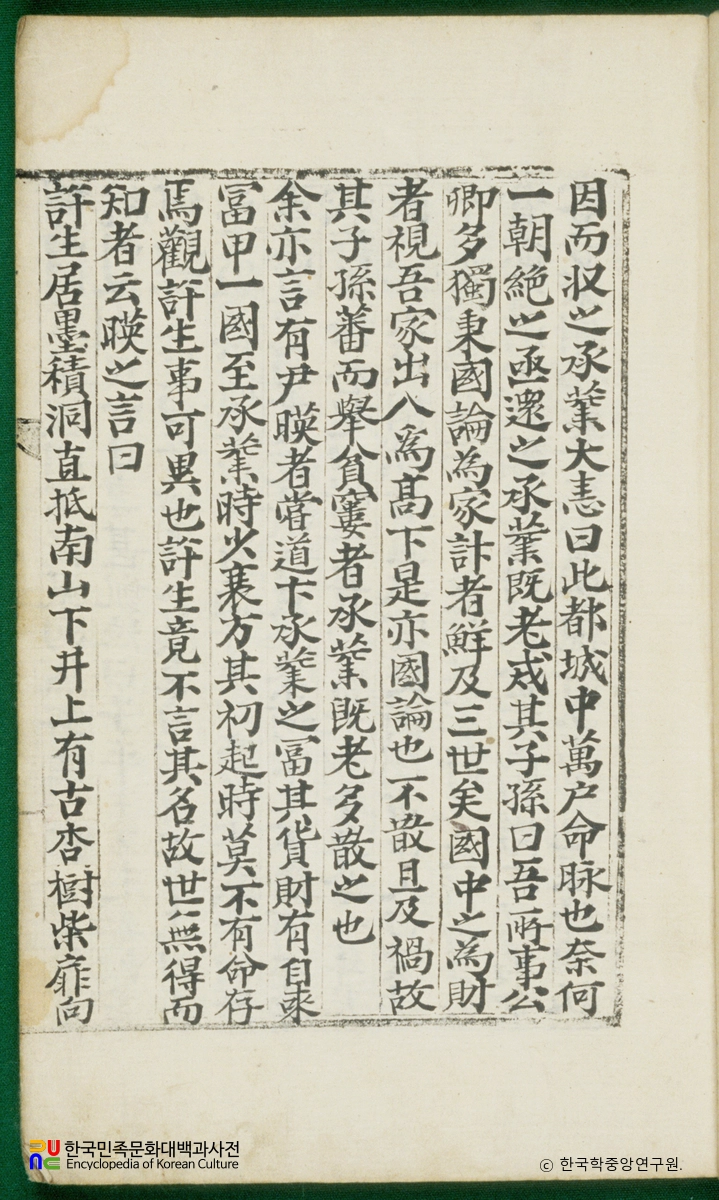 因而収之承業大恚曰此都城中萬户命脉也奈何
一朝絶之亟還之承業旣老戒其子孫曰吾所事公
卿多獨秉國論為家計者鮮及三世矣國中之為財
者視吾家出入爲髙下是亦國論也不散且及禍故
其子孫蕃而擧貧窶者承業旣老多散之也
余亦言有尹暎者嘗道卞承業之冨其貨財有自來
冨甲一國至承業時少衰方其初起時莫不有命存
焉觀許生事可異也許生竟不言其名故世無得而
知者云暎之言曰
許生居墨積洞直抵南山下井上有古杏樹柴扉向
한국민족문화대백과사전
Encyclopedia of Korean Culture
© 한국학중앙연구원.